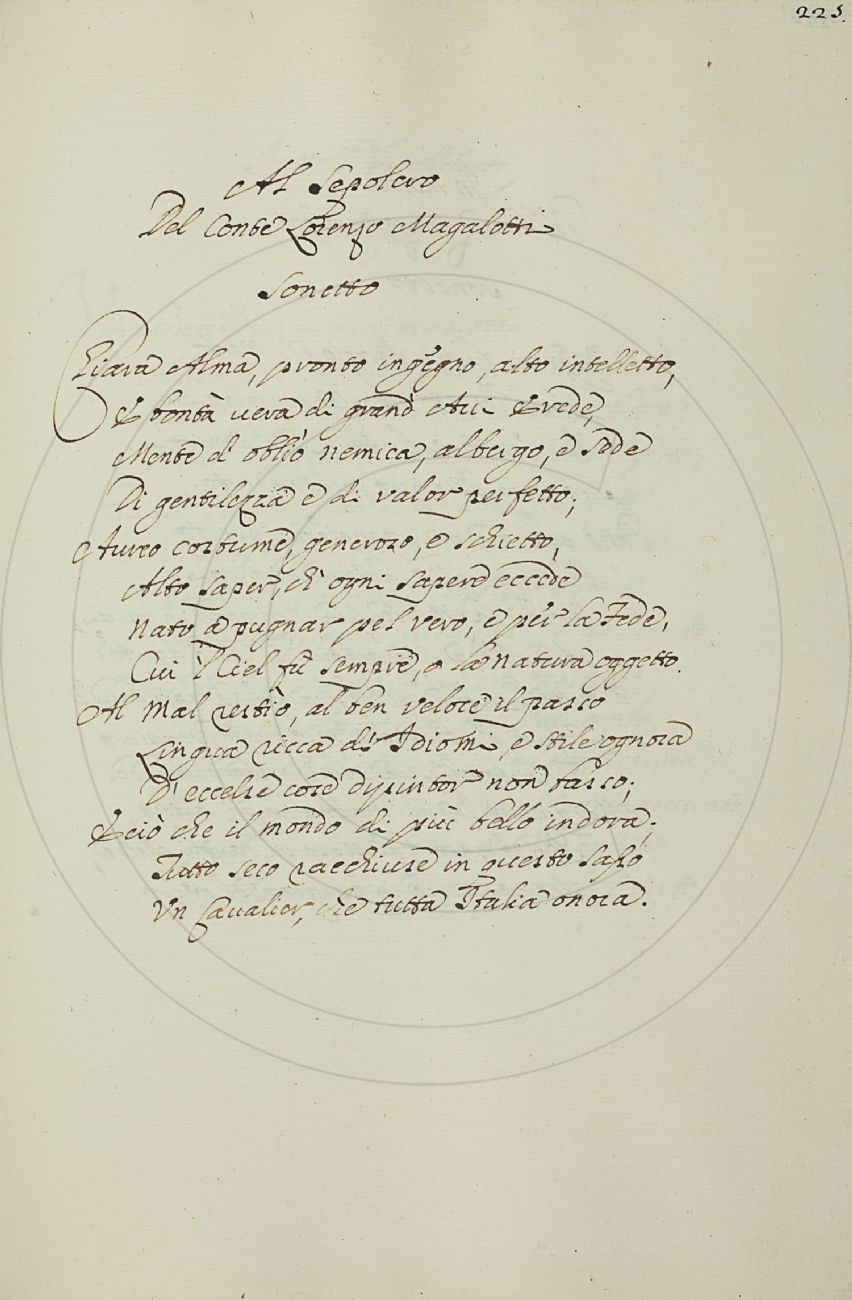 225.
Al Sepolcro
Del Conte Lorenzo Magalotti
Sonetto
Chiara Alma, pronto ingegno, alto intelletto,
E bontà vera di grand' Avi Erede,
Mente d' oblio nemica, albergo, e sede
Di gentilezza e di valor perfetto;
Aureo costume, generoso, e schietto,
Alto saper, ch' ogni sapere eccede
Nato a pugnar pel vero, e per la Fede,
Cui 'l Ciel fù sempre, o la Natura oggetto.
Al mal restio, al ben veloce il passo
Lingua ricca di Idiomi, e stile ognora
D' eccelse cose dipintor non basso;
E ciò che il mondo di più bello indora;
Tutto seco racchiuse in questo sasso
Un Cavalier, che tutta Italia onora.